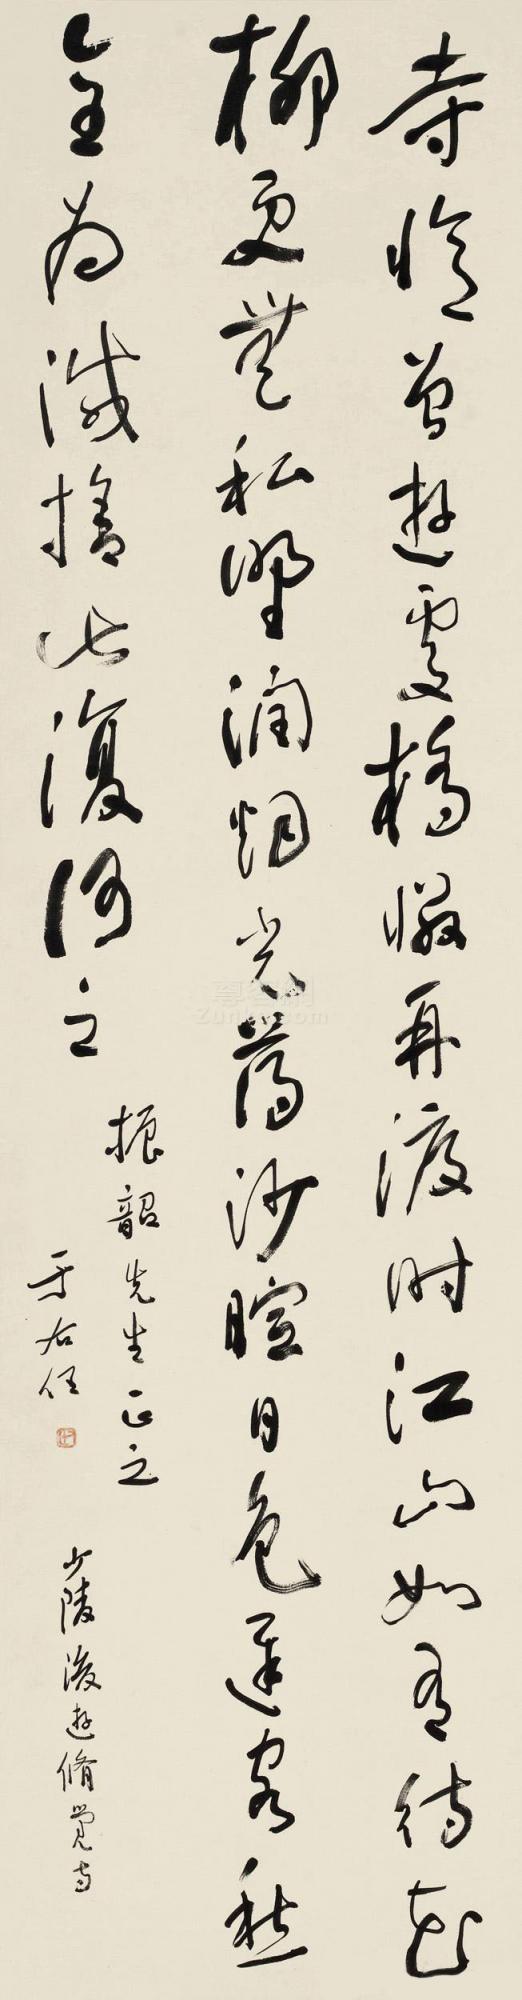 寺憶曾遊處橋憐再渡時江山如有待花
柳更無私野潤烟光薄沙暄日色遲客愁
全為減捨此復何之
振韶先生正之
于右任
少陵後遊修覺寺